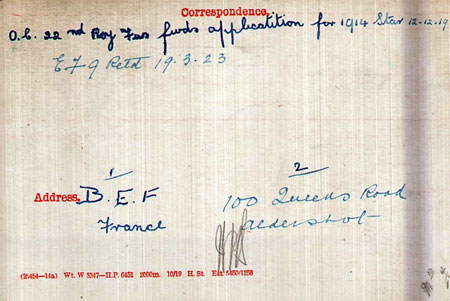 Correspondence.
O.C. 22nd Roy Fus fwds application for 1914 Star 12-12-19
E F 9 Retd 19.3.23
1
2
Address. B. E. F
France
100 Queens Road
Aldershot
(25454—14a) Wt. W 5347—H.P. 6431 2000m. 10/19 H. St. Est 5450/1256